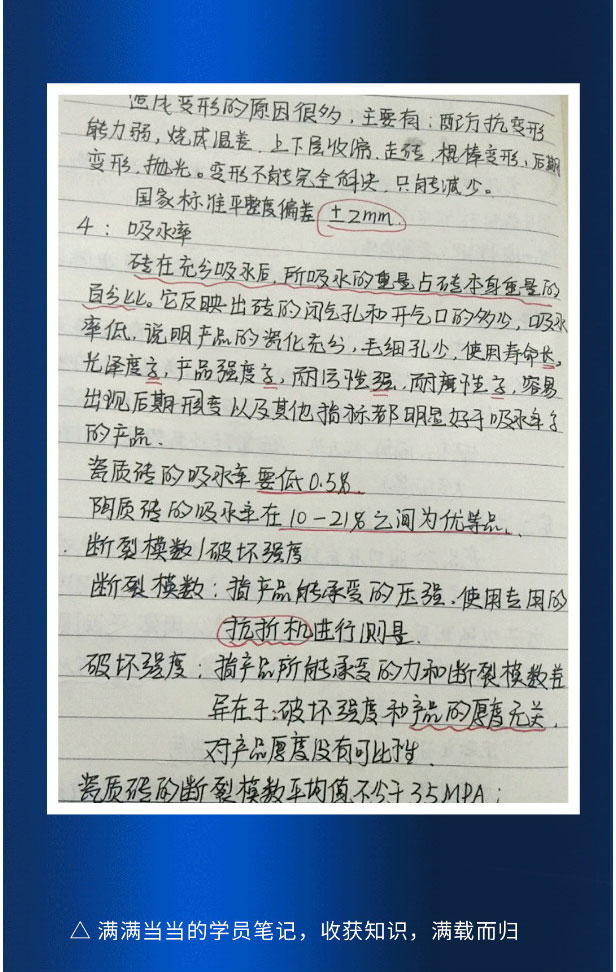 造成变形的原因很多，主要有：配方抗变形
能力弱，烧成温差、上下层收缩、走砖，棍棒变形、后期
变形、抛光。变形不能完全解决，只能减少。
国家标准平整度偏差 ±2mm.
4：吸水率
砖在充分吸水后，所吸水的重量占砖本身重量的
百分比。它反映出砖的闭气孔和开气口的多少，吸水
率低，说明产品的瓷化充分，毛细孔少，使用寿命长，
光泽度高，产品强度高，耐污性强，耐磨性高，容易
出现后期形变以及其他指标都明显好于吸水率高
的产品.
瓷质砖的吸水率要低0.5%.
陶质砖的吸水率在10-21%之间为优等品.
断裂模数/破坏强度
断裂模数：指产品能承受的压强.使用专用的
抗折机进行测量.
破坏强度：指产品所能承受的力和断裂模数差
异在于:破坏强度和产品的厚度无关.
对产品厚度没有可比性.
瓷质砖的断裂模数平均值不少于35MPA；
△ 满满当当的学员笔记，收获知识，满载而归